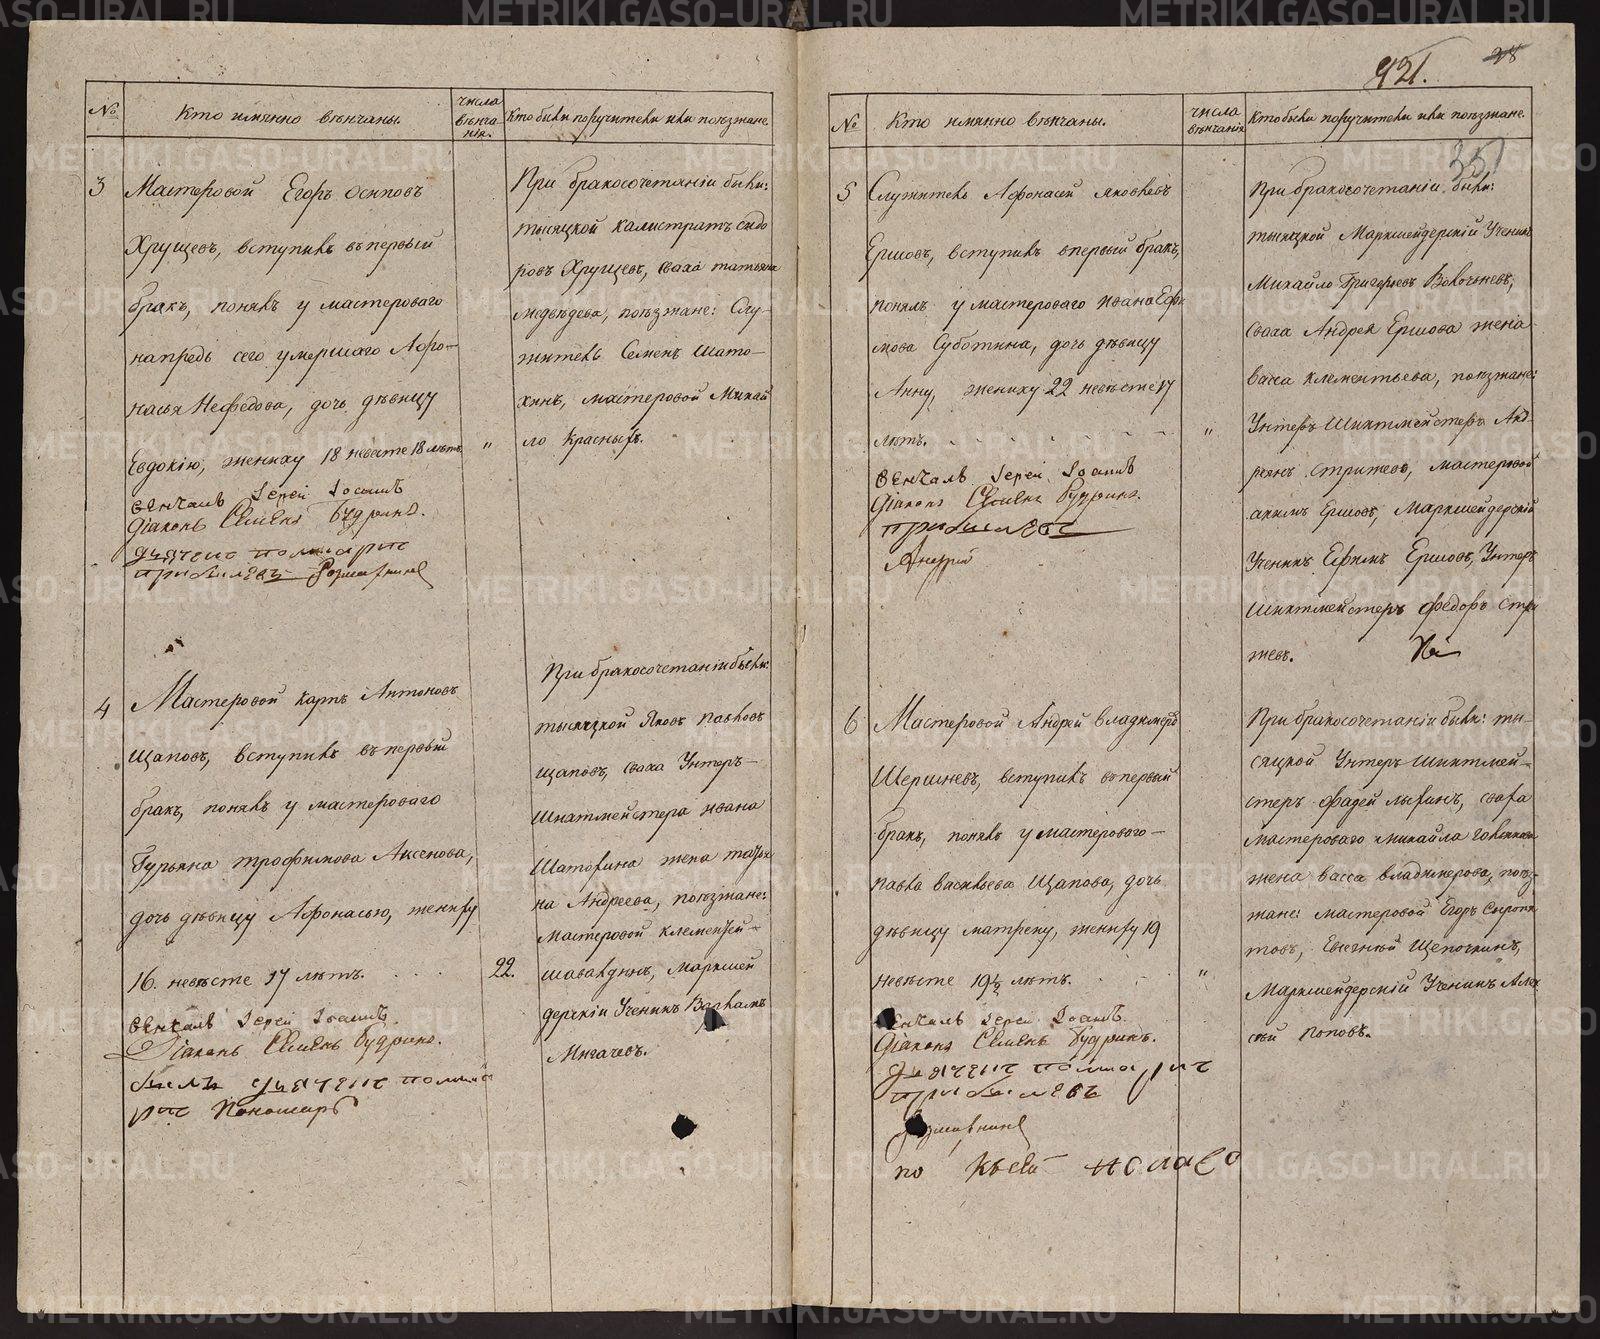 921.
28
35
№
Кто имянно вѣнчаны.
числа вѣнчания.
Кто были поручители или поѣзжане.
3
Мастеровой Егоръ Осиповъ
Хрущевъ, вступилъ въ первый
бракъ, понялъ у мастероваго
напредь сего умершаго Афо-
насья Нефедова, дочь дѣвицу
Евдокію, жениху 18 невесте 18 лѣтъ.
"
Венчалъ Іерей Іоаннъ
Діаконъ Семенъ Будринъ.
При бракосочетаніи были:
тысяцкой Калистратъ Сидо
ровъ Хрущевъ, сваха татьяна
медвѣдева, поѣзжане: Слу-
житель Семенъ Шато-
хинъ, мастеровой Михай
ло Красныхъ.
4
Мастеровой карпъ Антоновъ
Щаповъ, вступилъ въ первый
бракъ, понялъ у мастероваго
Гурьяна трофимова Аксенова,
дочь дѣвицу Афонасью, жениху
16. невѣсте 17 лѣтъ.
22.
Венчалъ Іерей Іоаннъ.
Діаконъ Семенъ Будринъ.
При бракосочетаніи были:
тысяцкой Яковъ павловъ
щаповъ, сваха Унтеръ-
Шихтмейстера Ивана
Шатохина жена татья
на Андреева, поѣзжане:
Мастеровой клементей-
шавкунъ, маркшей
дерскій Ученикъ Варламъ
Мигачевъ.
№
Кто имянно вѣнчаны.
числа вѣнчанія
Кто были поручители или поѣзжане.
5
Служитель Афонасей яковлевъ
Ершовъ, вступилъ впервый бракъ,
понялъ у мастероваго Ивана Ефи
мова Суботина, дочь дѣвицу
Анну, жениху 22 невѣсте 17
лѣтъ.
"
Венчалъ Іерей Іоаннъ
Діаконъ Семенъ Будринъ.
При бракосочетаніи были:
тысяцкой Маркшейдерскій Ученикъ
Михайло Григорьевъ
Сваха Андрея Ершова жена
васса клементьева, поѣзжане:
Унтеръ Шихтмейстеръ Анд-
реянъ Стрижевъ, мастеровой
акимъ Ершовъ, Маркшейдерскій
Ученикъ Ефимъ Ершовъ, Унтеръ
Шихтмейстеръ Федоръ Стри
жевъ.
6
Мастеровой Андрей владимеровъ
Шершневъ, вступилъ въ первый
бракъ, понялъ у мастероваго-
павла васильева Щапова, дочь
дѣвицу матрену, жениху 19
невѣсте 19½ лѣтъ.
"
Венчалъ Іерей Іоаннъ.
Діаконъ Семенъ Будринъ.
При бракосочетаніи были: ты-
сяцкой Унтеръ шихтмей-
стеръ Фадей лыхинъ, сваха
мастероваго михайла
жена васса владимерова, поѣз-
жане: мастеровой Егоръ Сыропя
товъ, Евгеній Щепочкинъ,
Маркшейдерскій Ученикъ Алек
сѣй поповъ.
METRIKI.GASO-URAL.RU